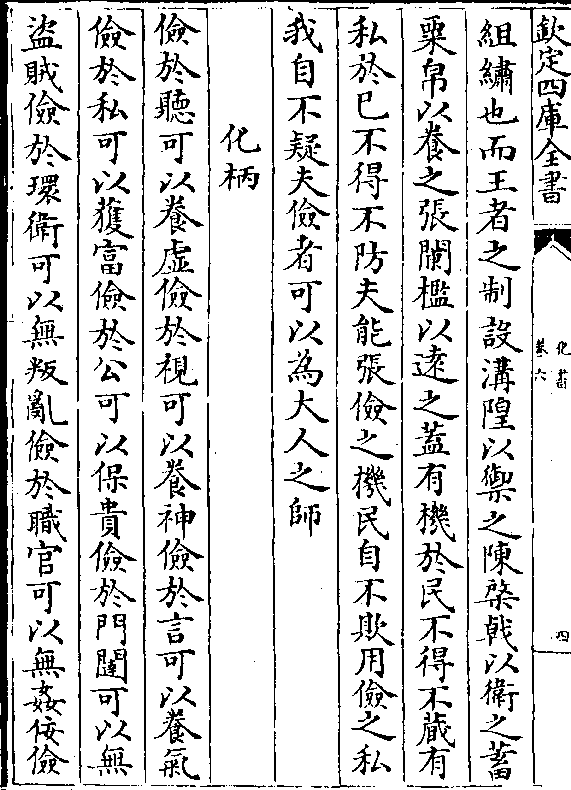 欽定四庫全書
化書
卷六
四
組繡也而王者之制設溝隍以禦之陳棨戟以衛之蓄
粟帛以養之張闌檻以遠之蓋有機於民不得不藏有
私於已不得不防夫能張儉之機民自不欺用儉之私
我自不疑夫儉者可以為大人之師
化柄
儉於聽可以養虛儉於視可以養神儉於言可以養氣
儉於私可以獲富儉於公可以保貴儉於門闥可以無
盜賊儉於環衛可以無叛亂儉於職官可以無姦佞儉